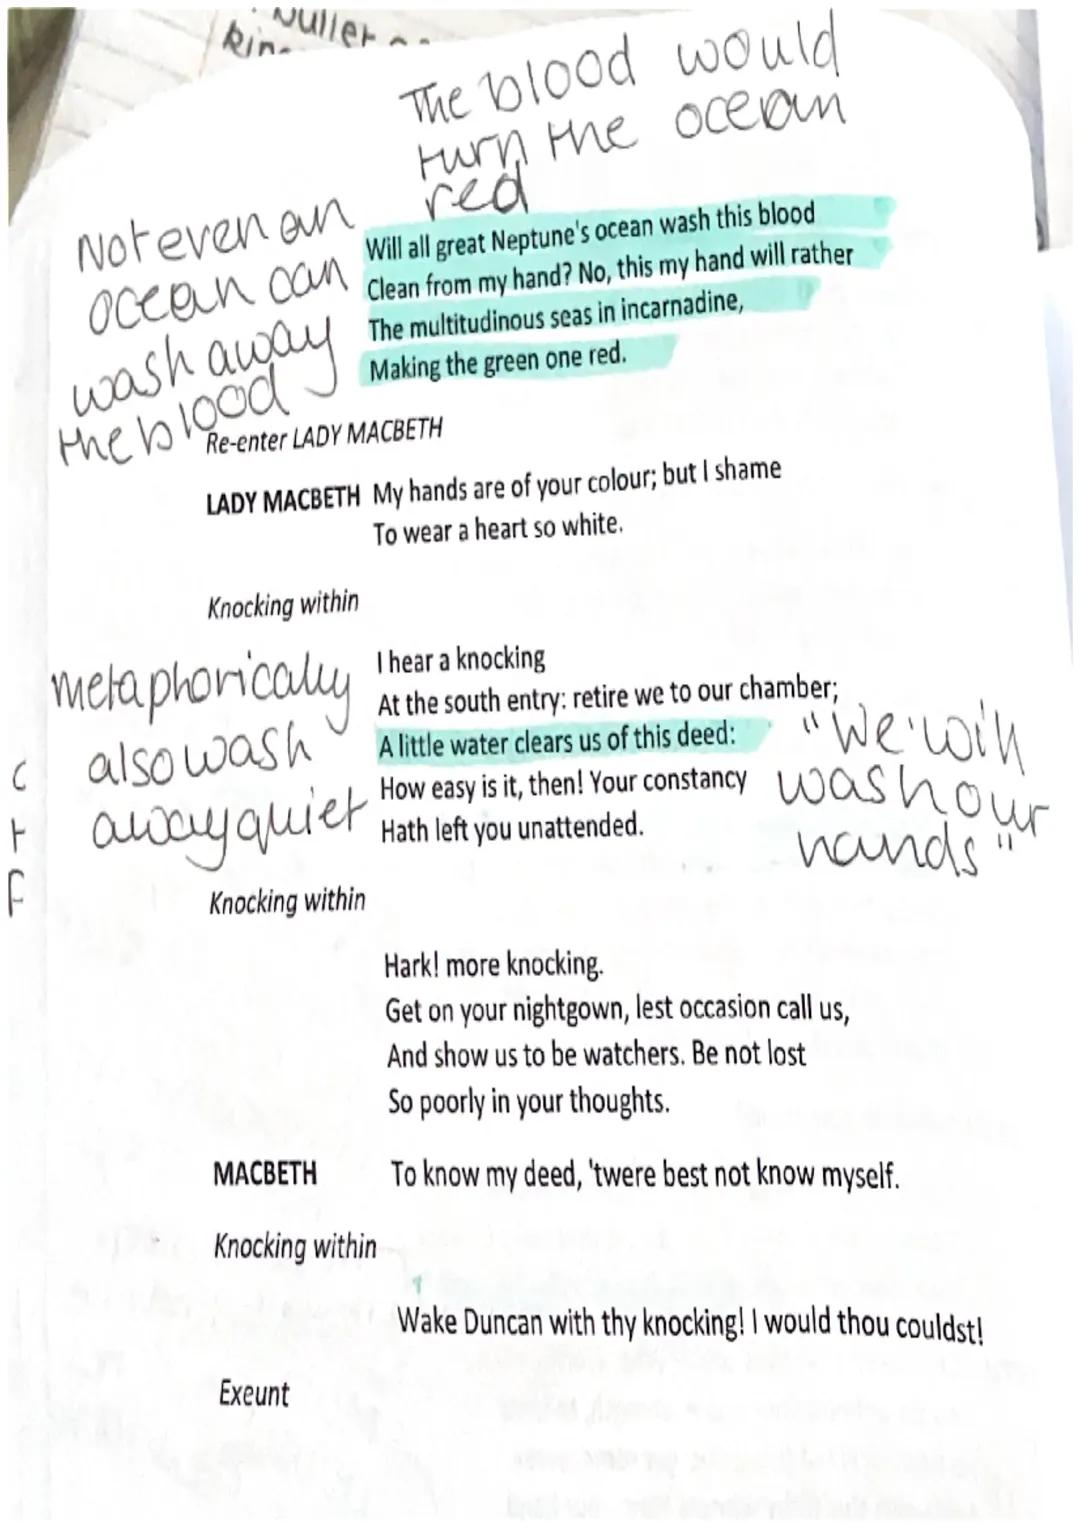 The blood would
turn the ocean
red
Not even an
ocean can
wash away
the blood
Will all great Neptune's ocean wash this blood
Clean from my hand? No, this my hand will rather
The multitudinous seas in incarnadine,
Making the green one red.
Re-enter LADY MACBETH
LADY MACBETH My hands are of your colour; but I shame
To wear a heart so white.
Knocking within
I hear a knocking
At the south entry: retire we to our chamber;
A little water clears us of this deed:
How easy is it, then! Your constancy
Hath left you unattended.
metaphorically
also wash
away quiet
"We will
wash our
hands"
Knocking within
Hark! more knocking.
Get on your nightgown, lest occasion call us,
And show us to be watchers. Be not lost
So poorly in your thoughts.
MACBETH To know my deed, 'twere best not know myself.
Knocking within
Wake Duncan with thy knocking! I would thou couldst!
Exeunt